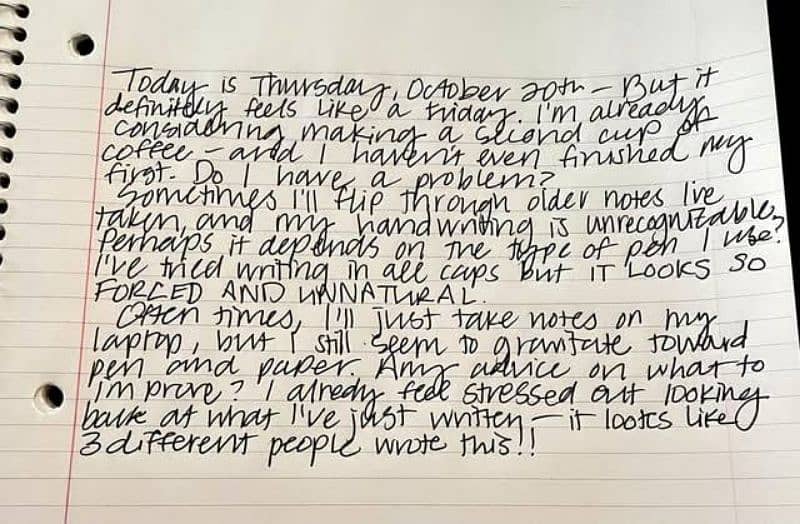 Today is Thursday, October 20th - But it
definitely feels like a Friday. I'm already
considering making a second cup of
coffee - and I haven't even finished my
first. Do I have a problem?
Sometimes I'll flip through older notes I've
taken, and my handwriting is unrecognizable.
Perhaps it depends on the type of pen I use?
I've tried writing in all caps but IT LOOKS SO
FORCED AND UNNATURAL.
Often times, I'll just take notes on my
laptop, but I still seem to gravitate toward
pen and paper. Any advice on what to
improve? I alredy feel stressed out looking
back at what I've just written - it looks like
3 different people wrote this!!